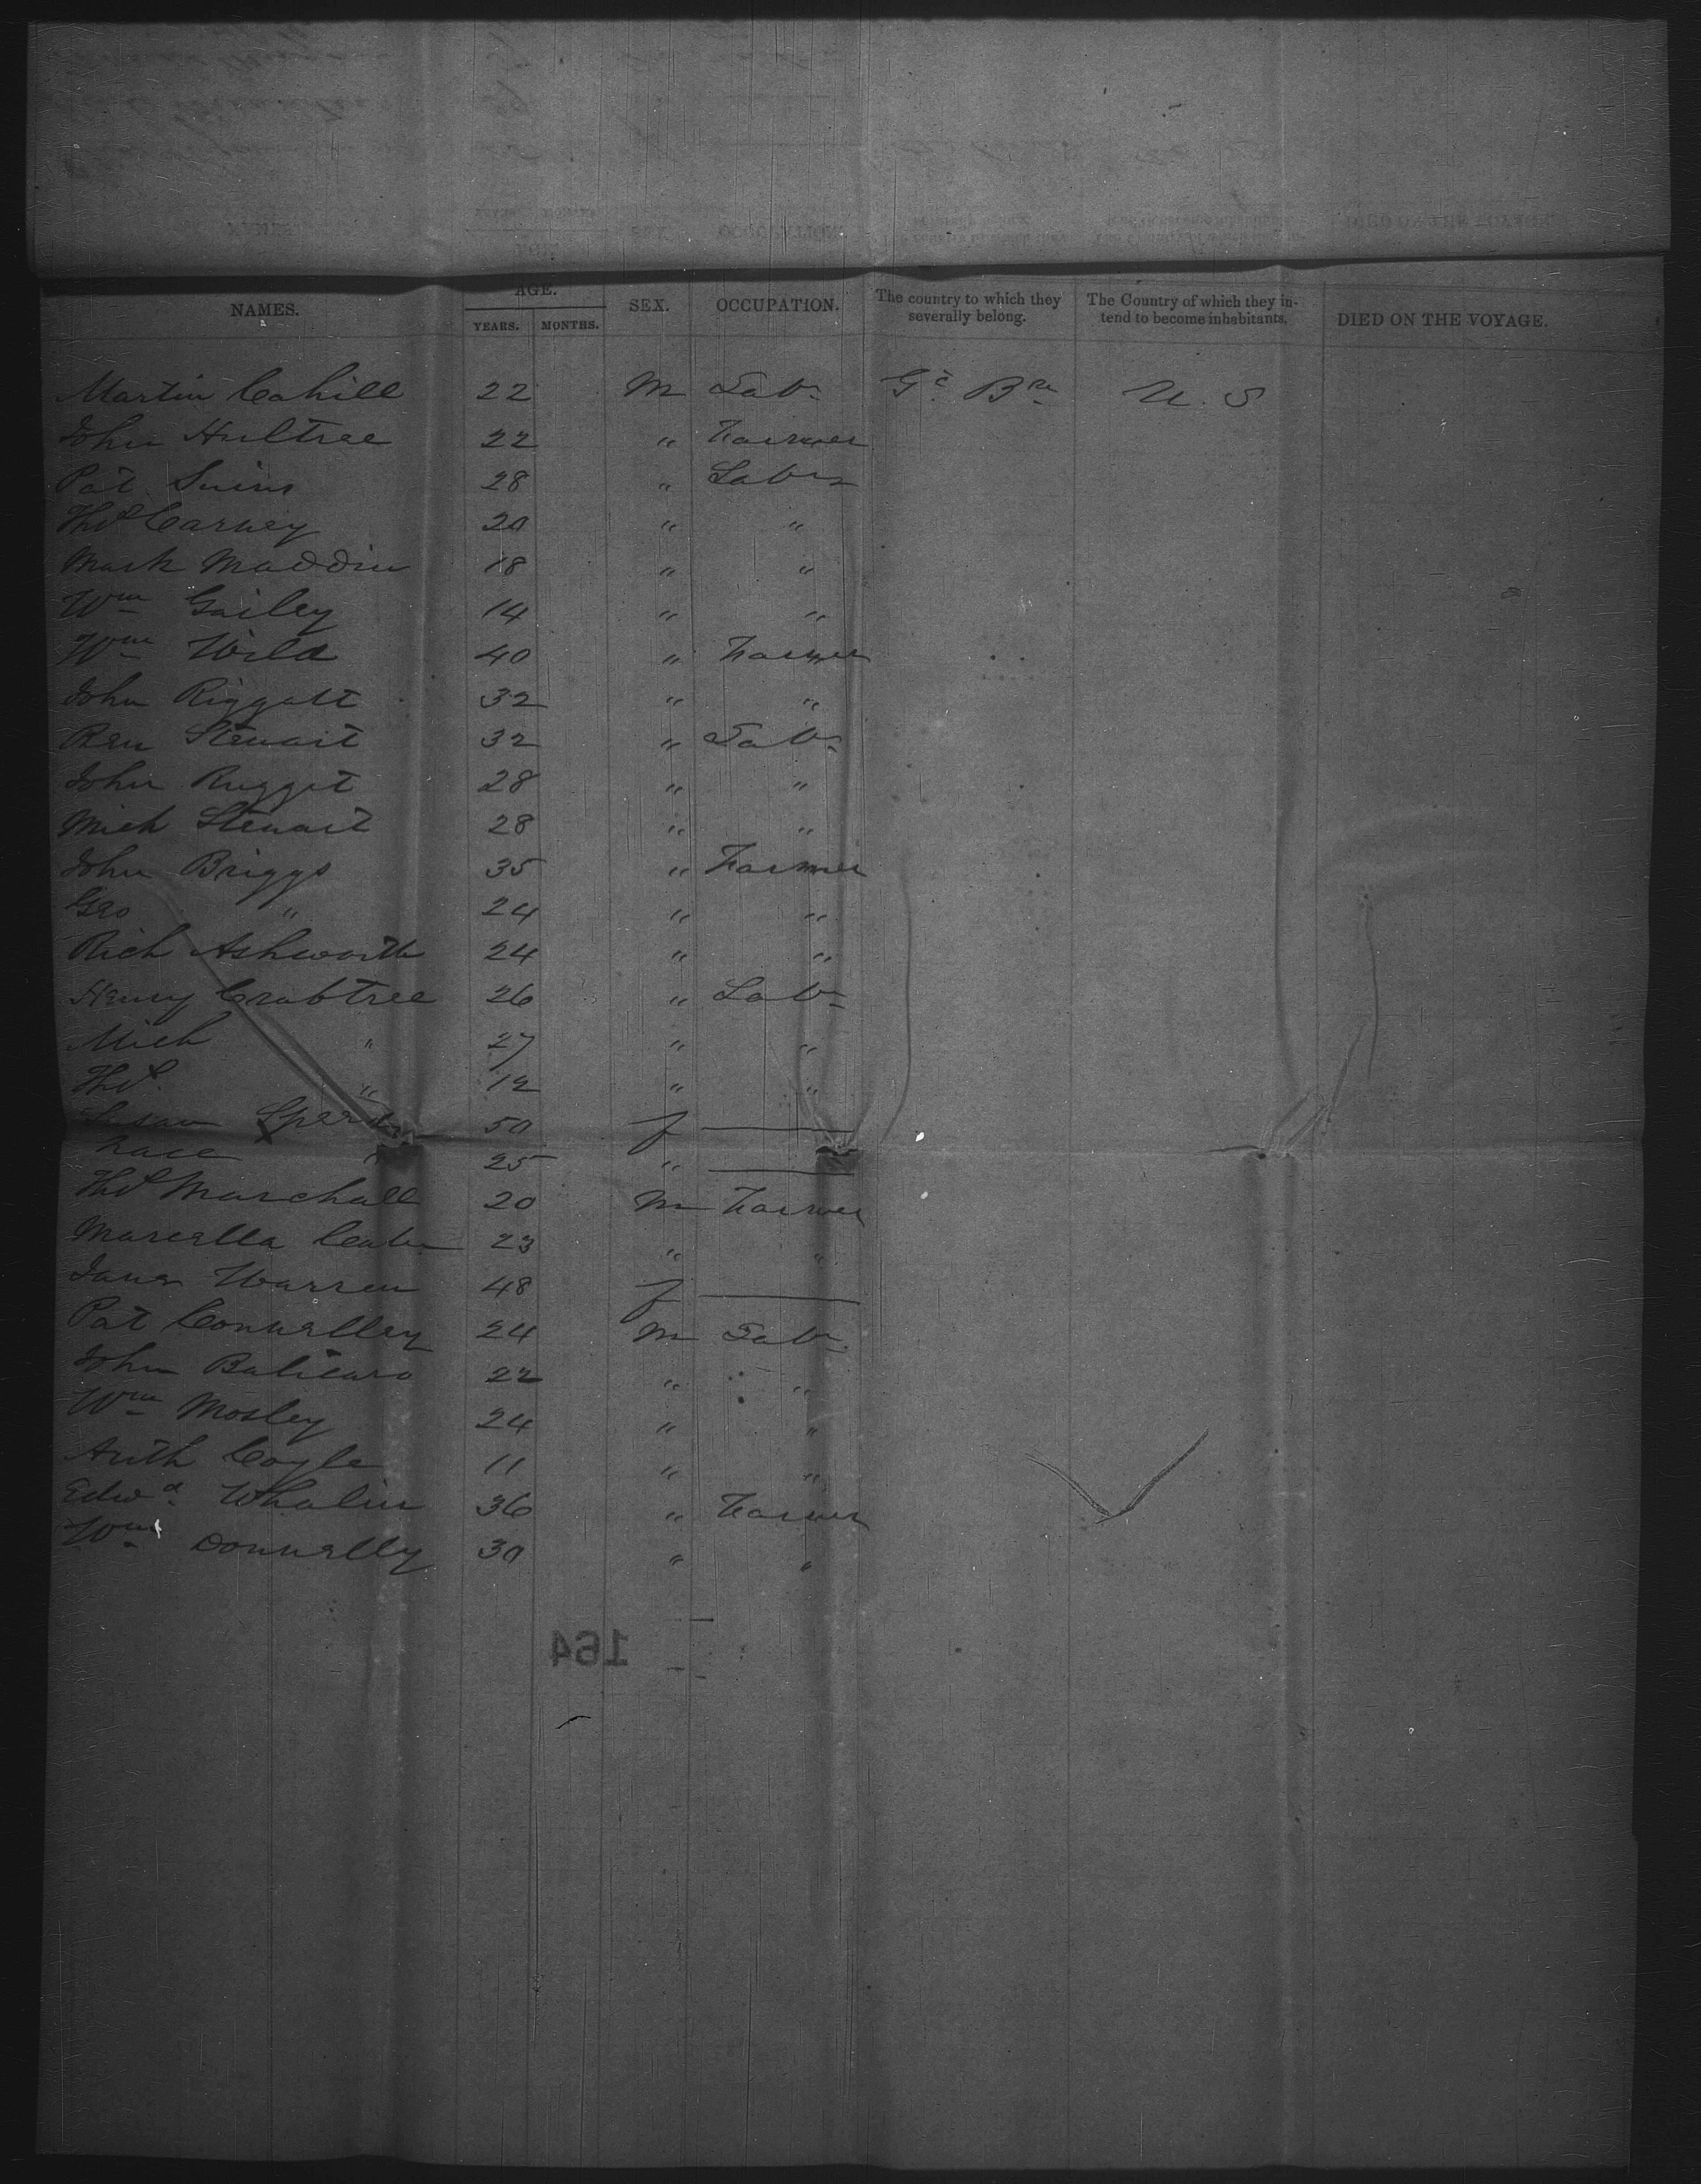 NAMES. AGE. SEX. OCCUPATION. The country to which they severally belong. The Country of which they intend to become inhabitants. DIED ON THE VOYAGE.
YEARS. MONTHS.
Martin Cahill 22 M Labr Gt Brn U. S
John Hultree 22 " Farmer
Pat 28 " Labr
Thos Carney 20 " "
Mark Maddin 18 " "
Wm Gailey 14 " "
Wm Wild 40 " Farmer
John Riggatt 32 " "
Ben Stewart 32 " Labr
John Rugget 28 " "
Mich Stewart 28 " "
John Briggs 35 " Farmer
Geo " 24 " "
Rich Ashworth 24 " "
Henry Crabtree 26 " Labr
Mich " 27 " "
Thos " 12 " "
Susan 50 f
25 "
Thos Marchall 20 M Farmer
Marcella 23 " "
Jane Warren 48 f
Pat Connelley 24 M Labr
John 22 " "
Wm Mosley 24 " "
Arth Coyle 11 " "
Edwd Whalin 36 " Farmer
Wm Donnelly 30 " "
164